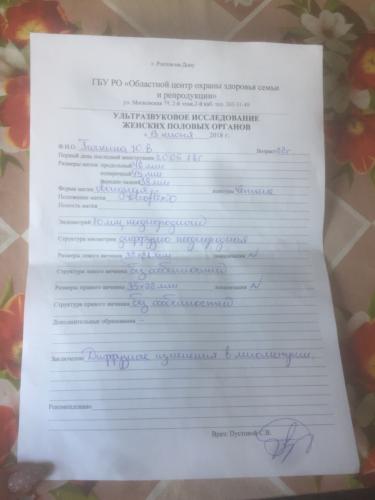 г. Ростов-на-Дону
ГБУ РО «Областной центр охраны здоровья семьи
и репродукции»
ул. Московская 75, 2-й этаж, каб. тел.
УЛЬТРАЗВУКОВОЕ ИССЛЕДОВАНИЕ
ЖЕНСКИХ ПОЛОВЫХ ОРГАНОВ
« 13 » июня 2018 г.
Ф.И.О. Ю.В. Возраст
Первый день последней менструации 20.05.18г
Размеры матки: продольный 48 мм
поперечный 45 мм
передне-задний 38 мм
Форма матки контуры четкие
Положение матки
Полость матки
Эндометрий 10 мм неоднородный
Структура миометрия диффузно неоднородная
Размеры левого яичника мм локализация N
Структура левого яичника без особенностей
Размеры правого яичника мм локализация N
Структура правого яичника без особенностей
Дополнительные образования –
Заключение Диффузные изменения в миометрии.
Рекомендовано
Врач: Пустовой С.В.